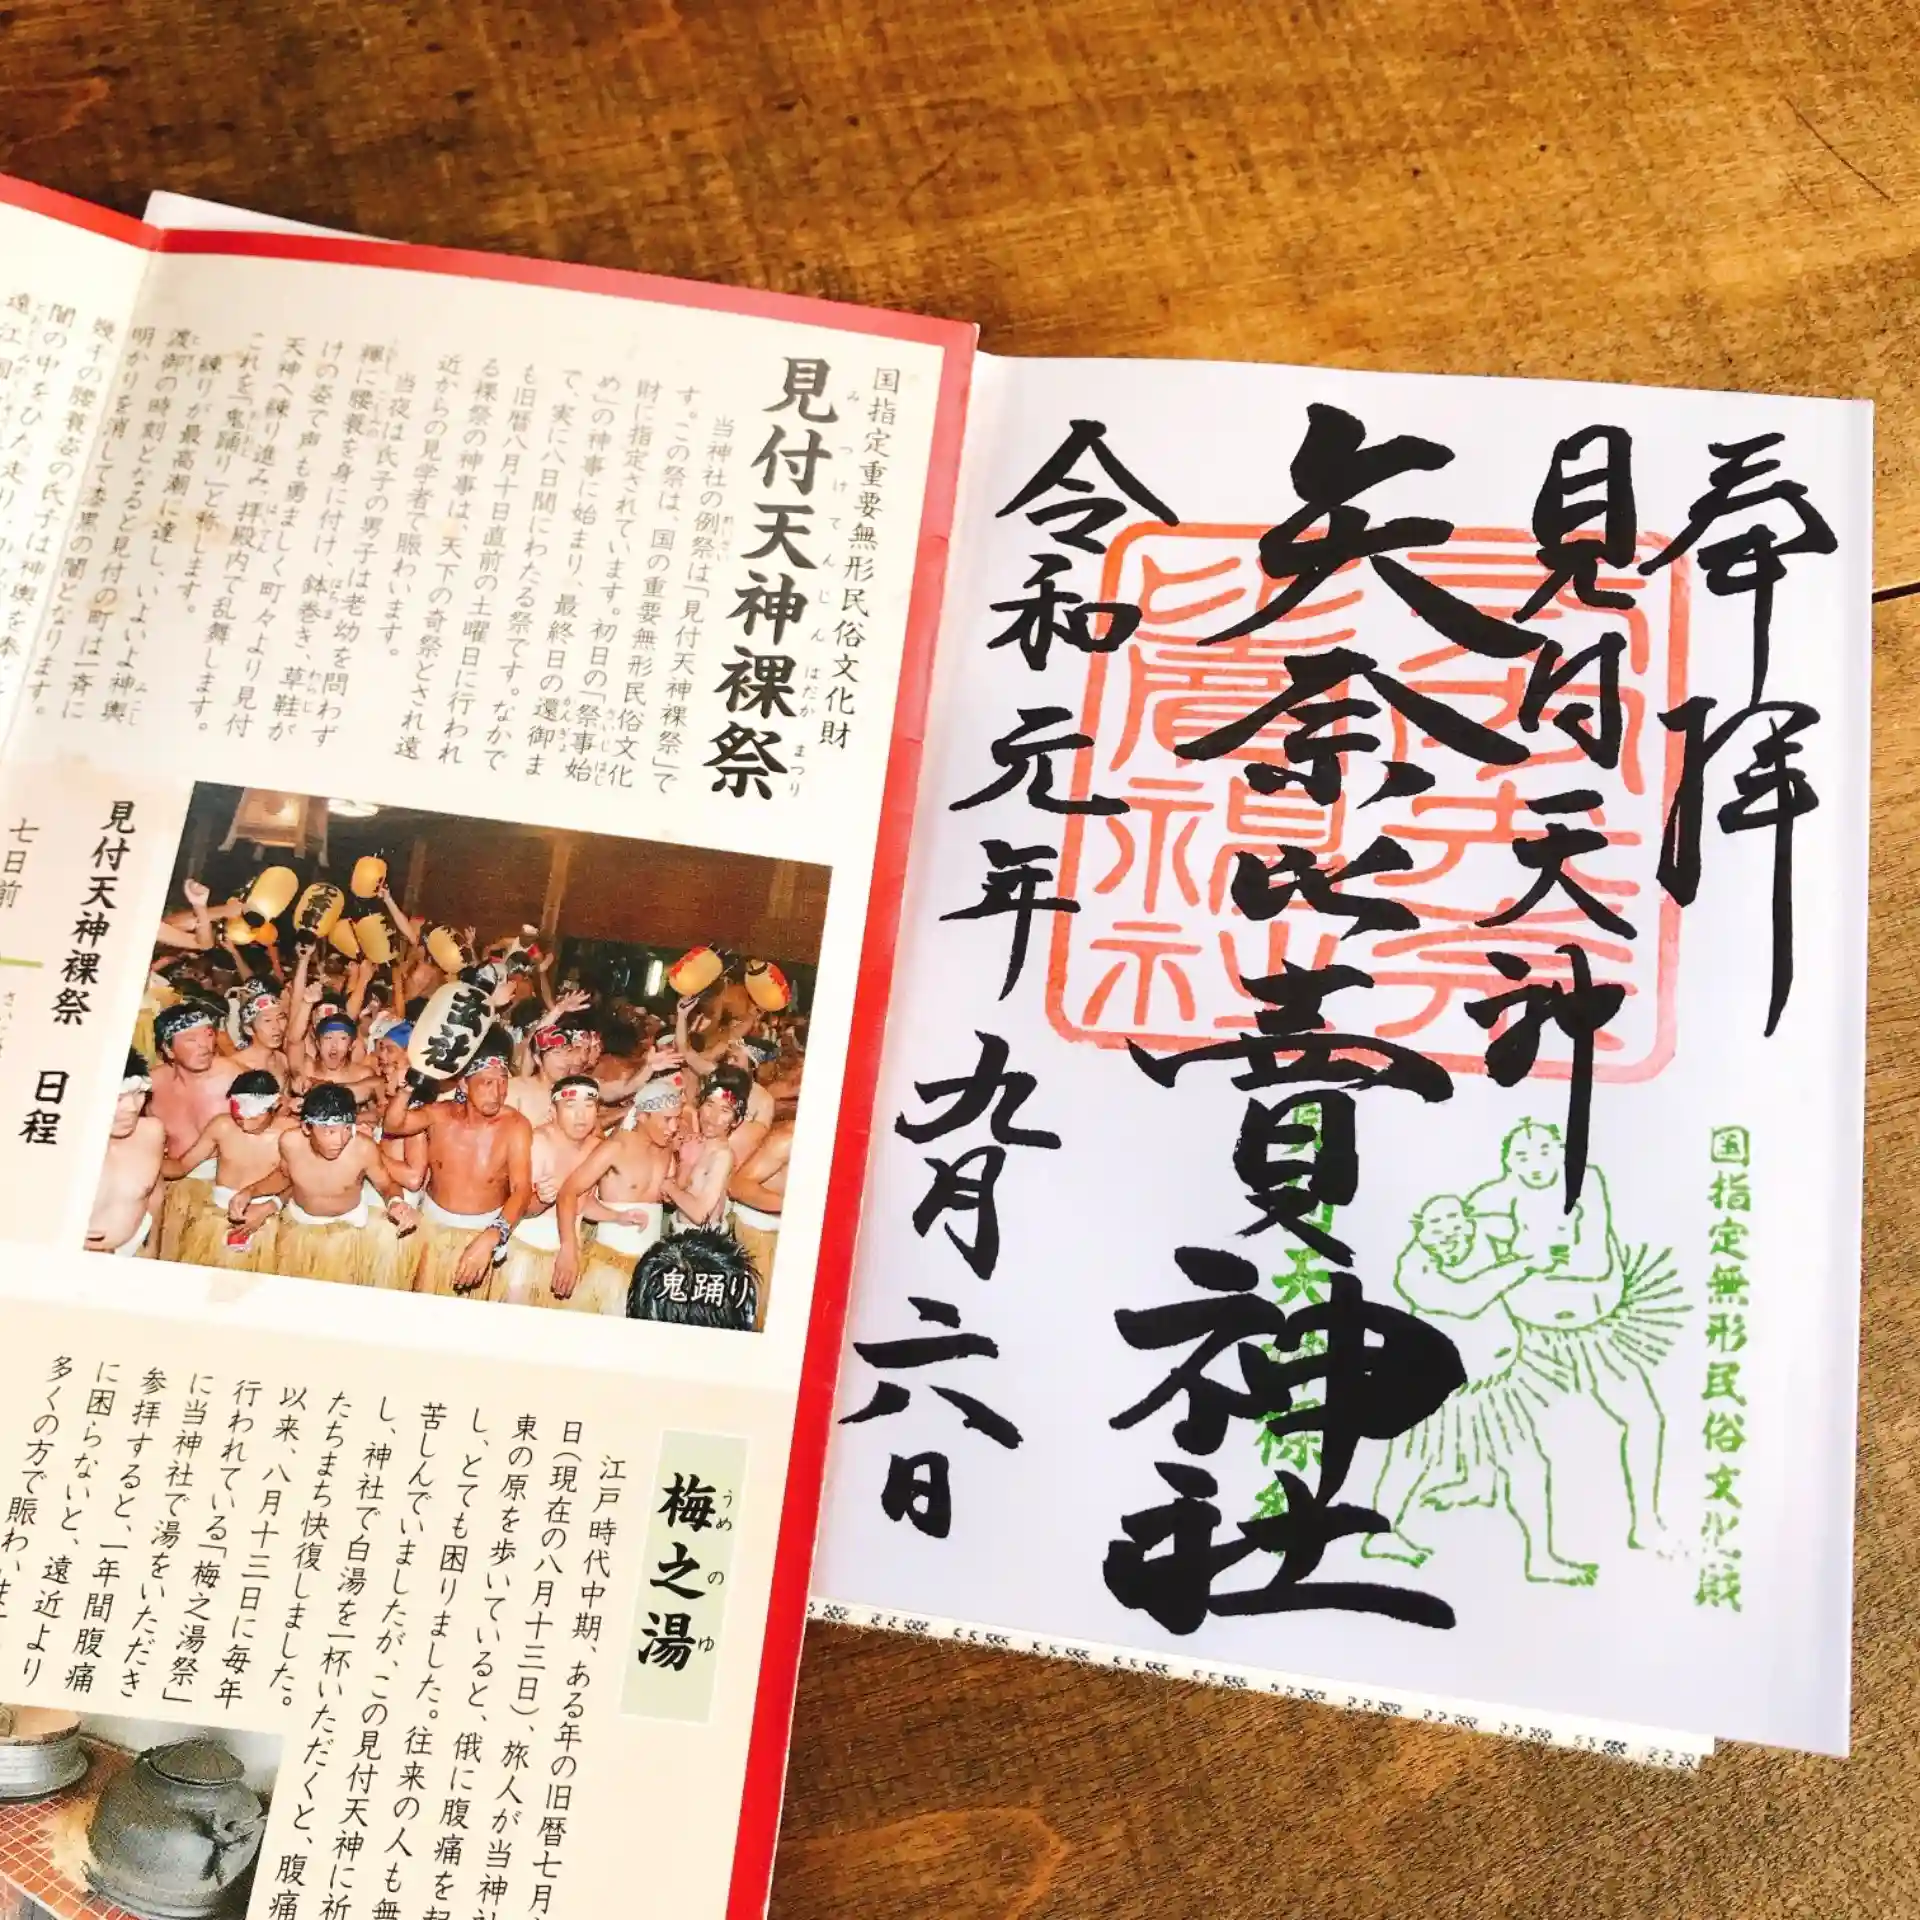 奉拝
見付天神
矢奈比賣神社
令和元年九月六日
国指定無形民俗文化財
国指定重要無形民俗文化財
見付天神裸祭
みつけてんじんはだかまつり
当神社の例祭は「見付天神裸祭」で
す。この祭は、国の重要無形民俗文化
財に指定されています。初日の「祭事始
め」の神事に始まり、最終日の還御ま
で、実に八日間にわたる祭です。なかで
も旧暦八月十日直前の土曜日に行われ
る裸祭の神事は、天下の奇祭とされ遠
近からの見学者で賑わいます。
当夜は氏子の男子は老幼を問わず
褌に腰蓑を身に付け、鉢巻き、草鞋が
けの姿で声も勇ましく町々より見付
天神へ練り進み、拝殿内で乱舞します。
これを「鬼踊り」と称します。
練りが最高潮に達し、いよいよ神輿
渡御の時刻となると見付の町は一斉に
明かりを消して漆黒の闇となります。
幾千の腰蓑姿の氏子は神輿を奉
闇の中をひた走り
鬼踊り
見付天神裸祭 日程
七日前
梅之湯
うめのゆ
江戸時代中期、ある年の旧暦七月
日(現在の八月十三日)、旅人が当神社
東の原を歩いていると、俄に腹痛を起
し、とても困りました。往来の人も無
苦しんでいましたが、この見付天神に祈
し、神社で白湯を一杯いただくと、腹痛
たちまち快復しました。
以来、八月十三日に毎年
行われている「梅之湯祭」
に当神社で湯をいただき
参拝すると、一年間腹痛
に困らないと、遠近より
多くの方で賑わいます